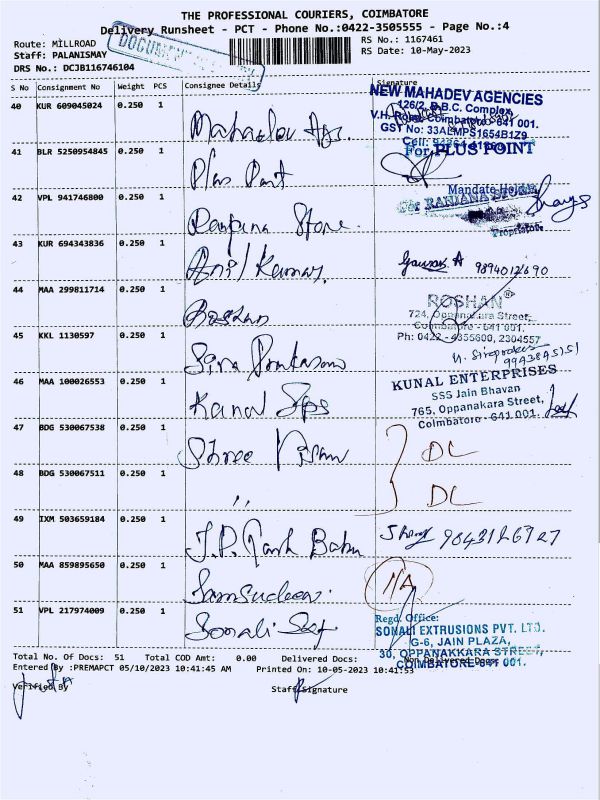 THE PROFESSIONAL COURIERS, COIMBATORE
Delivery Runsheet - PCT - Phone No.:0422-3505555 - Page No.:4
Route: MILLROAD
RS No.: 1167461
Staff: PALANISMAY
RS Date: 10-May-2023
DRS No.: DCJB116746104
DOCUMENT
S No Consignment No Weight PCS Consignee Details Signature
40 KUR 609045024 0.250 1 Mahadev Ags.
NEW MAHADEV AGENCIES
126/2, B.B.C. Complex,
V.H. Road, Coimbatore - 641 001.
GST No: 33ALMPS1654B1Z9
Cell:
41 BLR 5250954845 0.250 1 Plus Point
For PLUS POINT
42 VPL 941746800 0.250 1 Ranjana Store.
Mandate Holder
For RANJANA STORE
Proprietor
43 KUR 694343836 0.250 1 Anil Kumar.
Gaurav A 9894012690
44 MAA 299811714 0.250 1 Roshan
ROSHAN®
724, Oppanakara Street,
Coimbatore - 641 001.
Ph: 0422 - 4355600, 2304557
45 KKL 1130597 0.250 1 Siva
46 MAA 100026553 0.250 1 Kunal
KUNAL ENTERPRISES
SSS Jain Bhavan
765, Oppanakara Street,
Coimbatore - 641 001.
47 BDG 530067538 0.250 1 Shree
DL
48 BDG 530067511 0.250 1 ,,
DL
49 IXM 503659184 0.250 1 J.P. Babu
9843126727
50 MAA 859895650 0.250 1
51 VPL 217974009 0.250 1 Sonali
Regd. Office:
SONALI EXTRUSIONS PVT. LTD.
G-6, JAIN PLAZA,
30, OPPANAKKARA STREET,
COIMBATORE-641 001.
Total No. Of Docs: 51 Total COD Amt: 0.00 Delivered Docs: Non Delivered Docs:
Entered By :PREMAPCT 05/10/2023 10:41:45 AM Printed On: 10-05-2023 10:41:53
Verified By Staff Signature